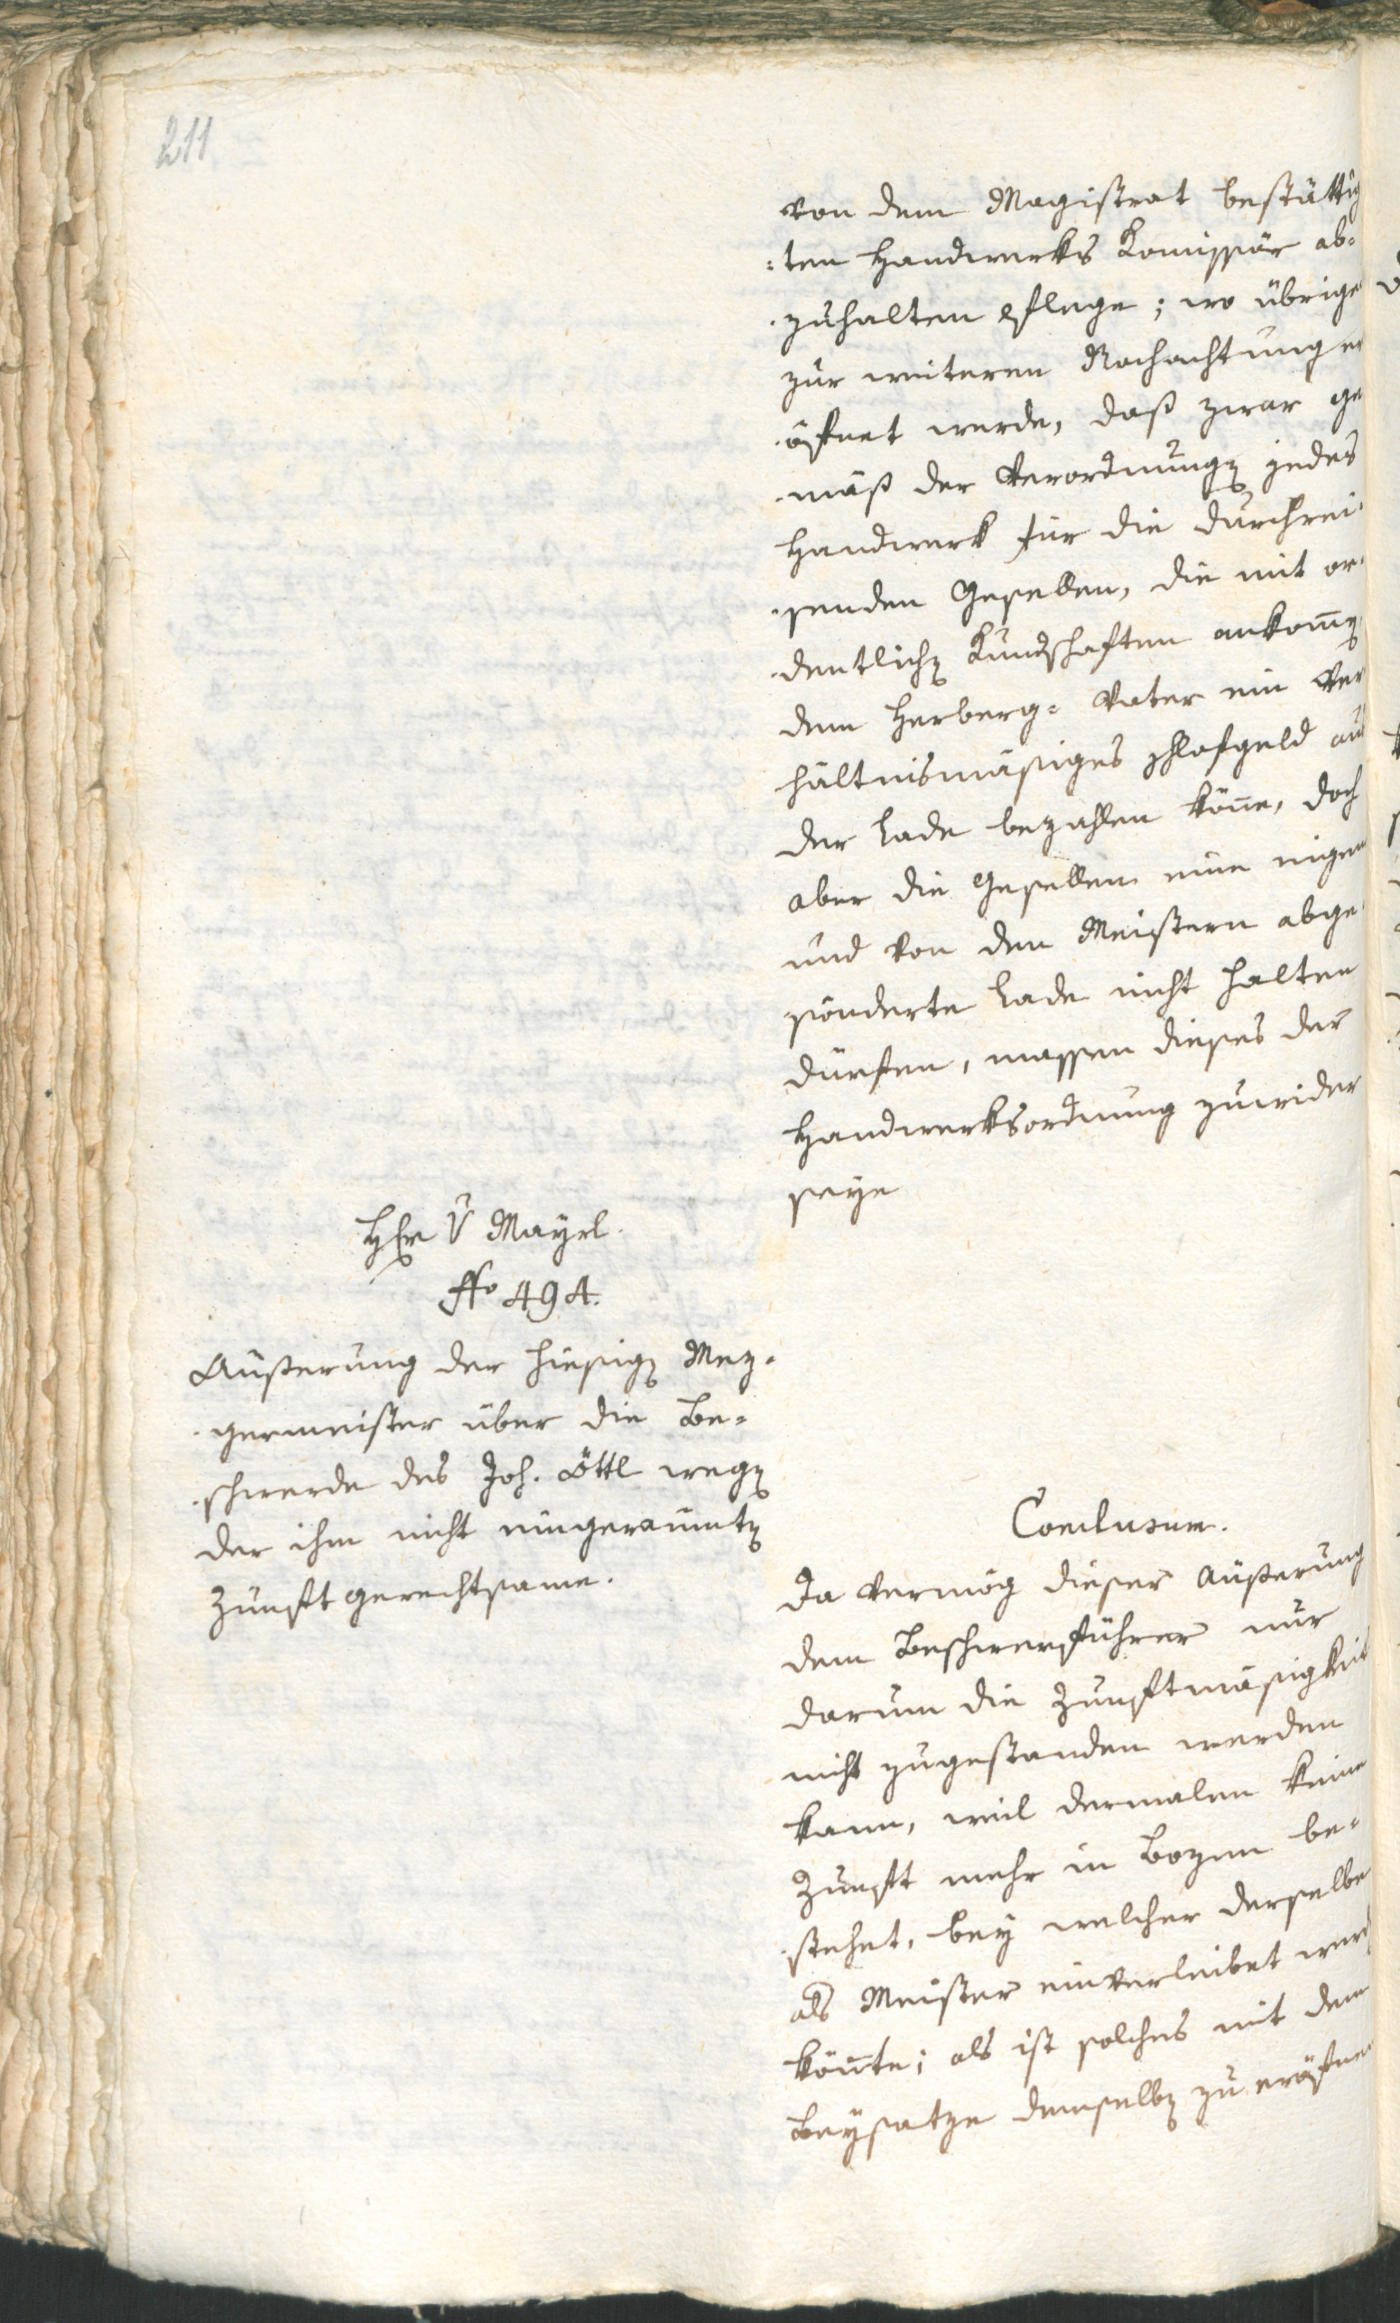 211
von dem Magistrat bestättig
:ten Handwerks Komissär ab-
zuhalten pflege; wo übrige
zur weiteren Nachachtung er
öfnet werde, daß zwar ge
mäß der Verordnung jedes
Handwerk für die durchrei-
senden Gesellen, die mit or-
dentlichen Kundschaften ankommen
dem Herberg- Vater ein Ver
hältnismäsiges schlafgeld aus
der Lade bezahlen könne, doch
aber die Gesellen eine eigene
und von den Meistern abge
sönderte Lade nicht halten
dürfen, massen dieses der
Handwerksordnung zuwider
seye
H Mayrl.
No 494.
Äußerung der hiesigen Mez-
germeister über die Be-
schwerde des Joh. Öttl wegen
der ihm nicht eingeraumten
Zunftgerechtsame.
Conclusum.
Da vermög dieser Äußerung
dem Beschwerführer nur
darum die Zunftmäsigkeit
nicht zugestanden werden
kann, weil dermalen keine
Zunft mehr in Bozen be-
stehet, bey welcher derselbe
als Meister einverleibet werden
könnte; als ist solches mit dem
Beysatze demselben zu eröfnen